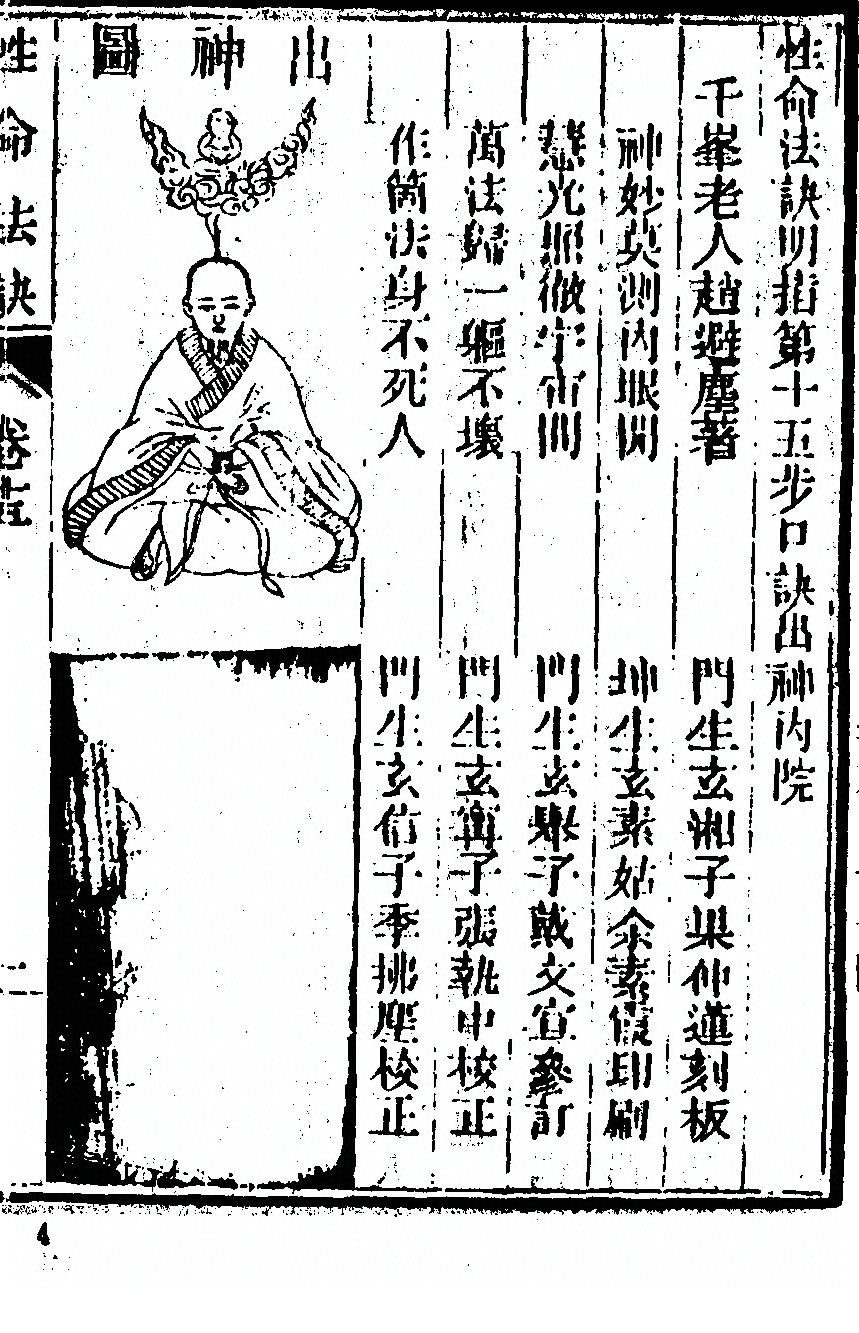 性命法訣明指第十五步口訣出神內院
千峯老人趙避塵著
門生玄湘子果仲蓮刻板
神妙莫測內眼開
坤生玄素姑余素霞印刷
慧光照徹宇宙間
門生玄舉子戴文宣參訂
萬法歸一軀不壞
門生玄甯子張執中校正
作箇法身不死人
門生玄信子李拂塵校正
出神圖
性命法訣
4